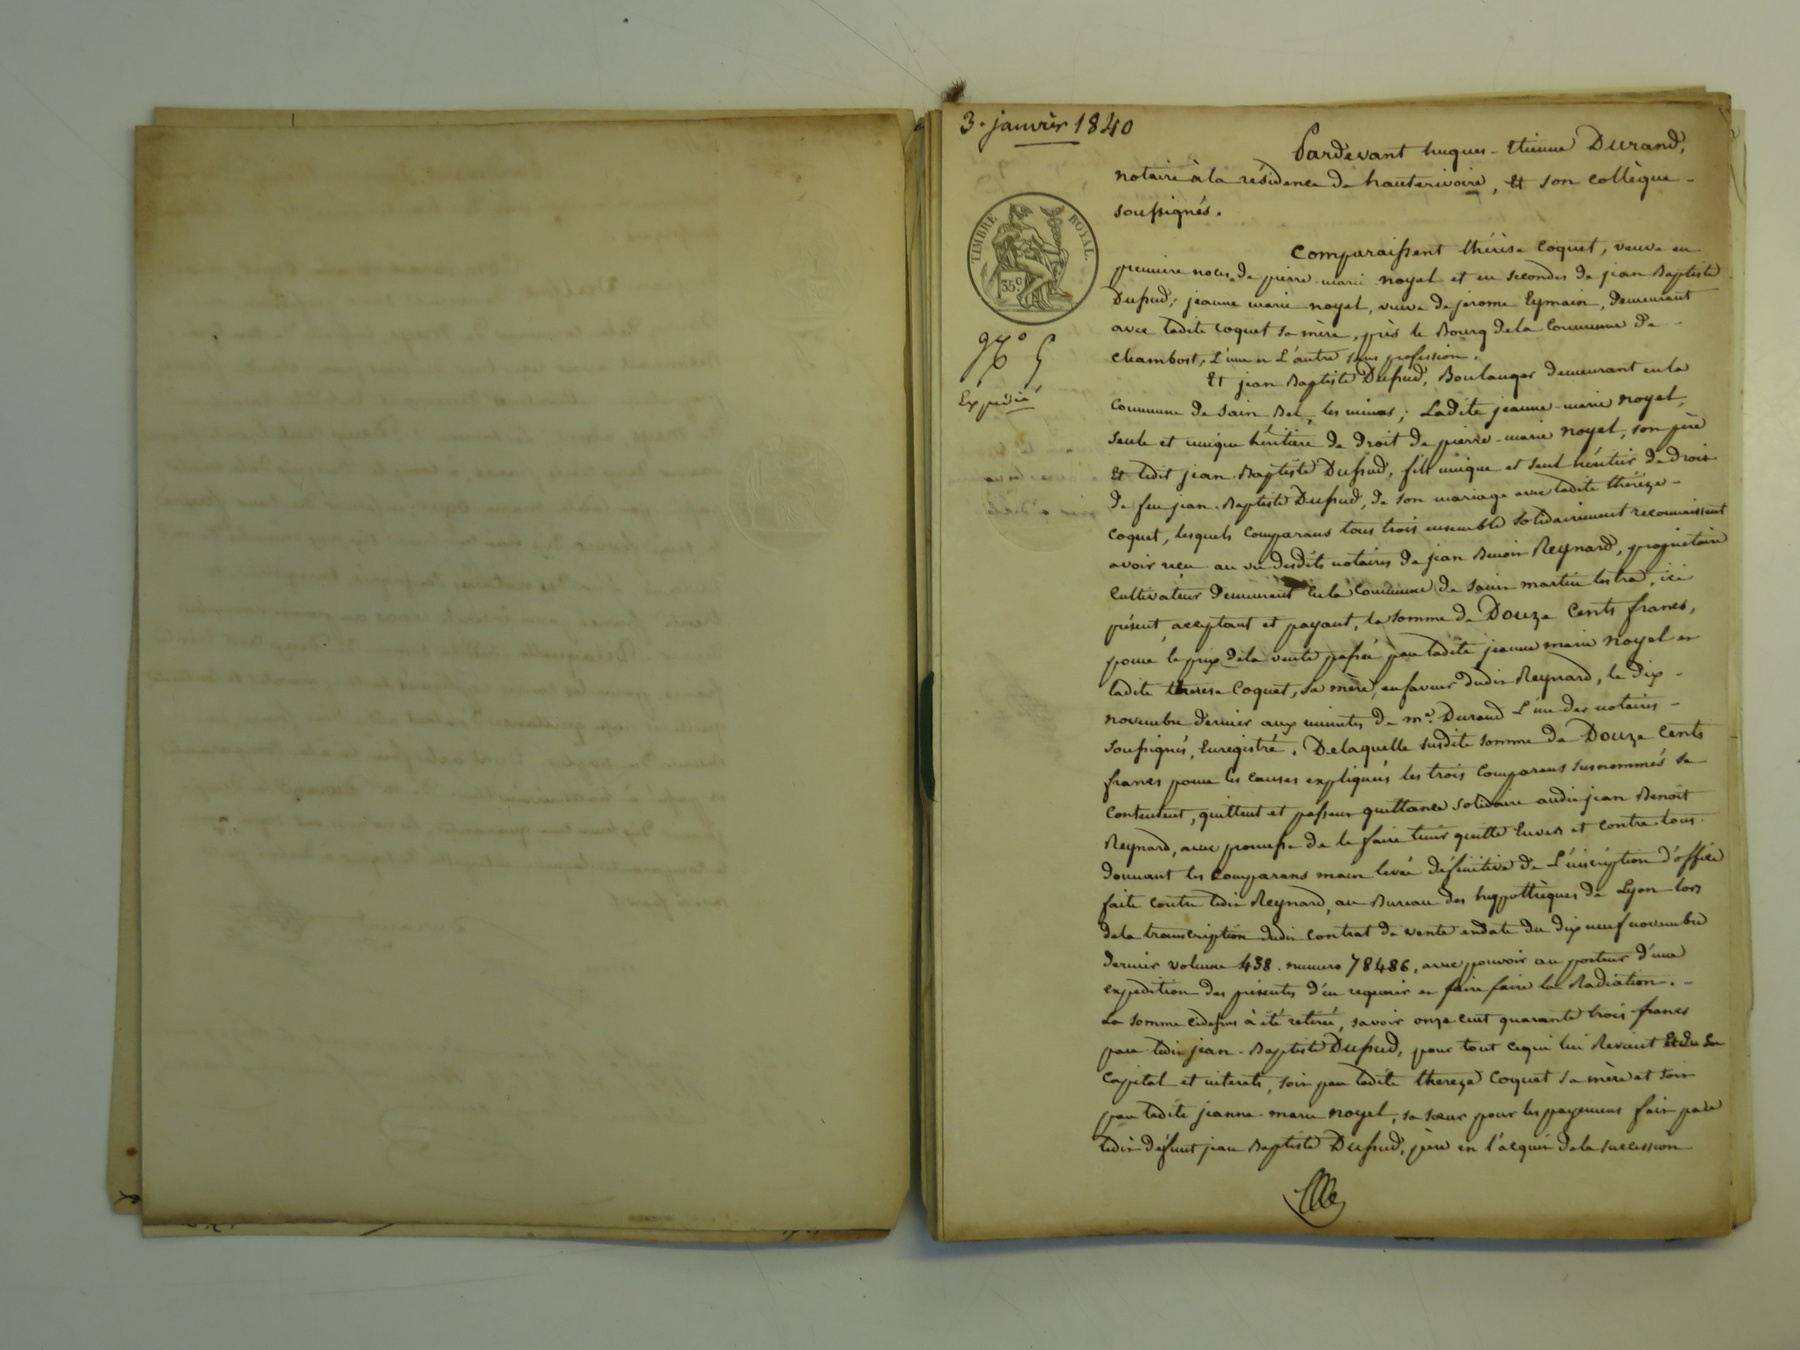 3. janvier 1840
Pardevant hugues-Etienne Durand,
notaire à la résidence de hauterivoire, Et son collègue
soussignés.
TIMBRE ROYAL.
35 c
Comparaissent thérèse Coquet, veuve en
premiere noces de pierre-marie noyel et en secondes de jean Baptiste
Dussud; jeanne marie noyel, veuve de jerome Eymain, demeurant
avec ladite Coquet sa mère, près le Bourg dela Commune de
Chambost, L'une et L'autre sans profession.
N.o 5
Expédié
Et jean Baptiste Dussud, Boulanger demeurant en la
Commune de Sain Bel, les mines; Ladite jeanne-marie noyel,
seule et unique héritière de droit de pierre-marie noyel, son père
Et ledit jean-Baptiste Dussud, fils unique et seul héritier de droit
de feu jean-Baptiste Dussud, de son mariage avec ladite thérèze
Coquet, lesquels Comparans tous trois ensemble solidairement reconnaissent
avoir reçu au vu desdits notaires de jean Benoit Reynard, propriétaire
Cultivateur demeurant En la Commune de Saint martin lestra, ici
présent, acceptant et payant, la somme de Douze Cents francs,
pour le prix dela vente passée par ladite jeanne marie noyel et
ladite therese Coquet, sa mère, en faveur dudit Reynard, le dix
novembre dernier aux minutes de me. Durand L'un des notaires
Soussignés, Enregistré. Delaquelle susdite somme de Douze Cents
francs pour les causes expliquées les trois Comparans susnommés se
Contentent, quittent et passent quittance solidaire audit jean Benoit
Reynard, avec promesse de le faire tenir quitte Envers et contre tous.
donnant les Comparans main levée définitive de L'inscription d'office
faite contre ledit Reynard, au Bureau des hyppothèques de Lyon lors
dela transcription dudit contrat de vente endate du dix neuf novembre
dernier volume 438. numero 78486, avec pouvoir au porteur d'une
expedition des présentes d'en requerir et faire faire la Radiation.
La somme cidessus à été retirée, savoir onze cent quarante trois francs
par ledit jean-Baptiste Dussud, pour tout cequi lui Revient Et du En
Capital et interets, soit par ladite thereze Coquet sa mère et soit
par ladite jeanne-marie noyel, sa sœur pour les payemens fait par
ledit défunt jean Baptiste Dussud, père en l'acquit dela succession